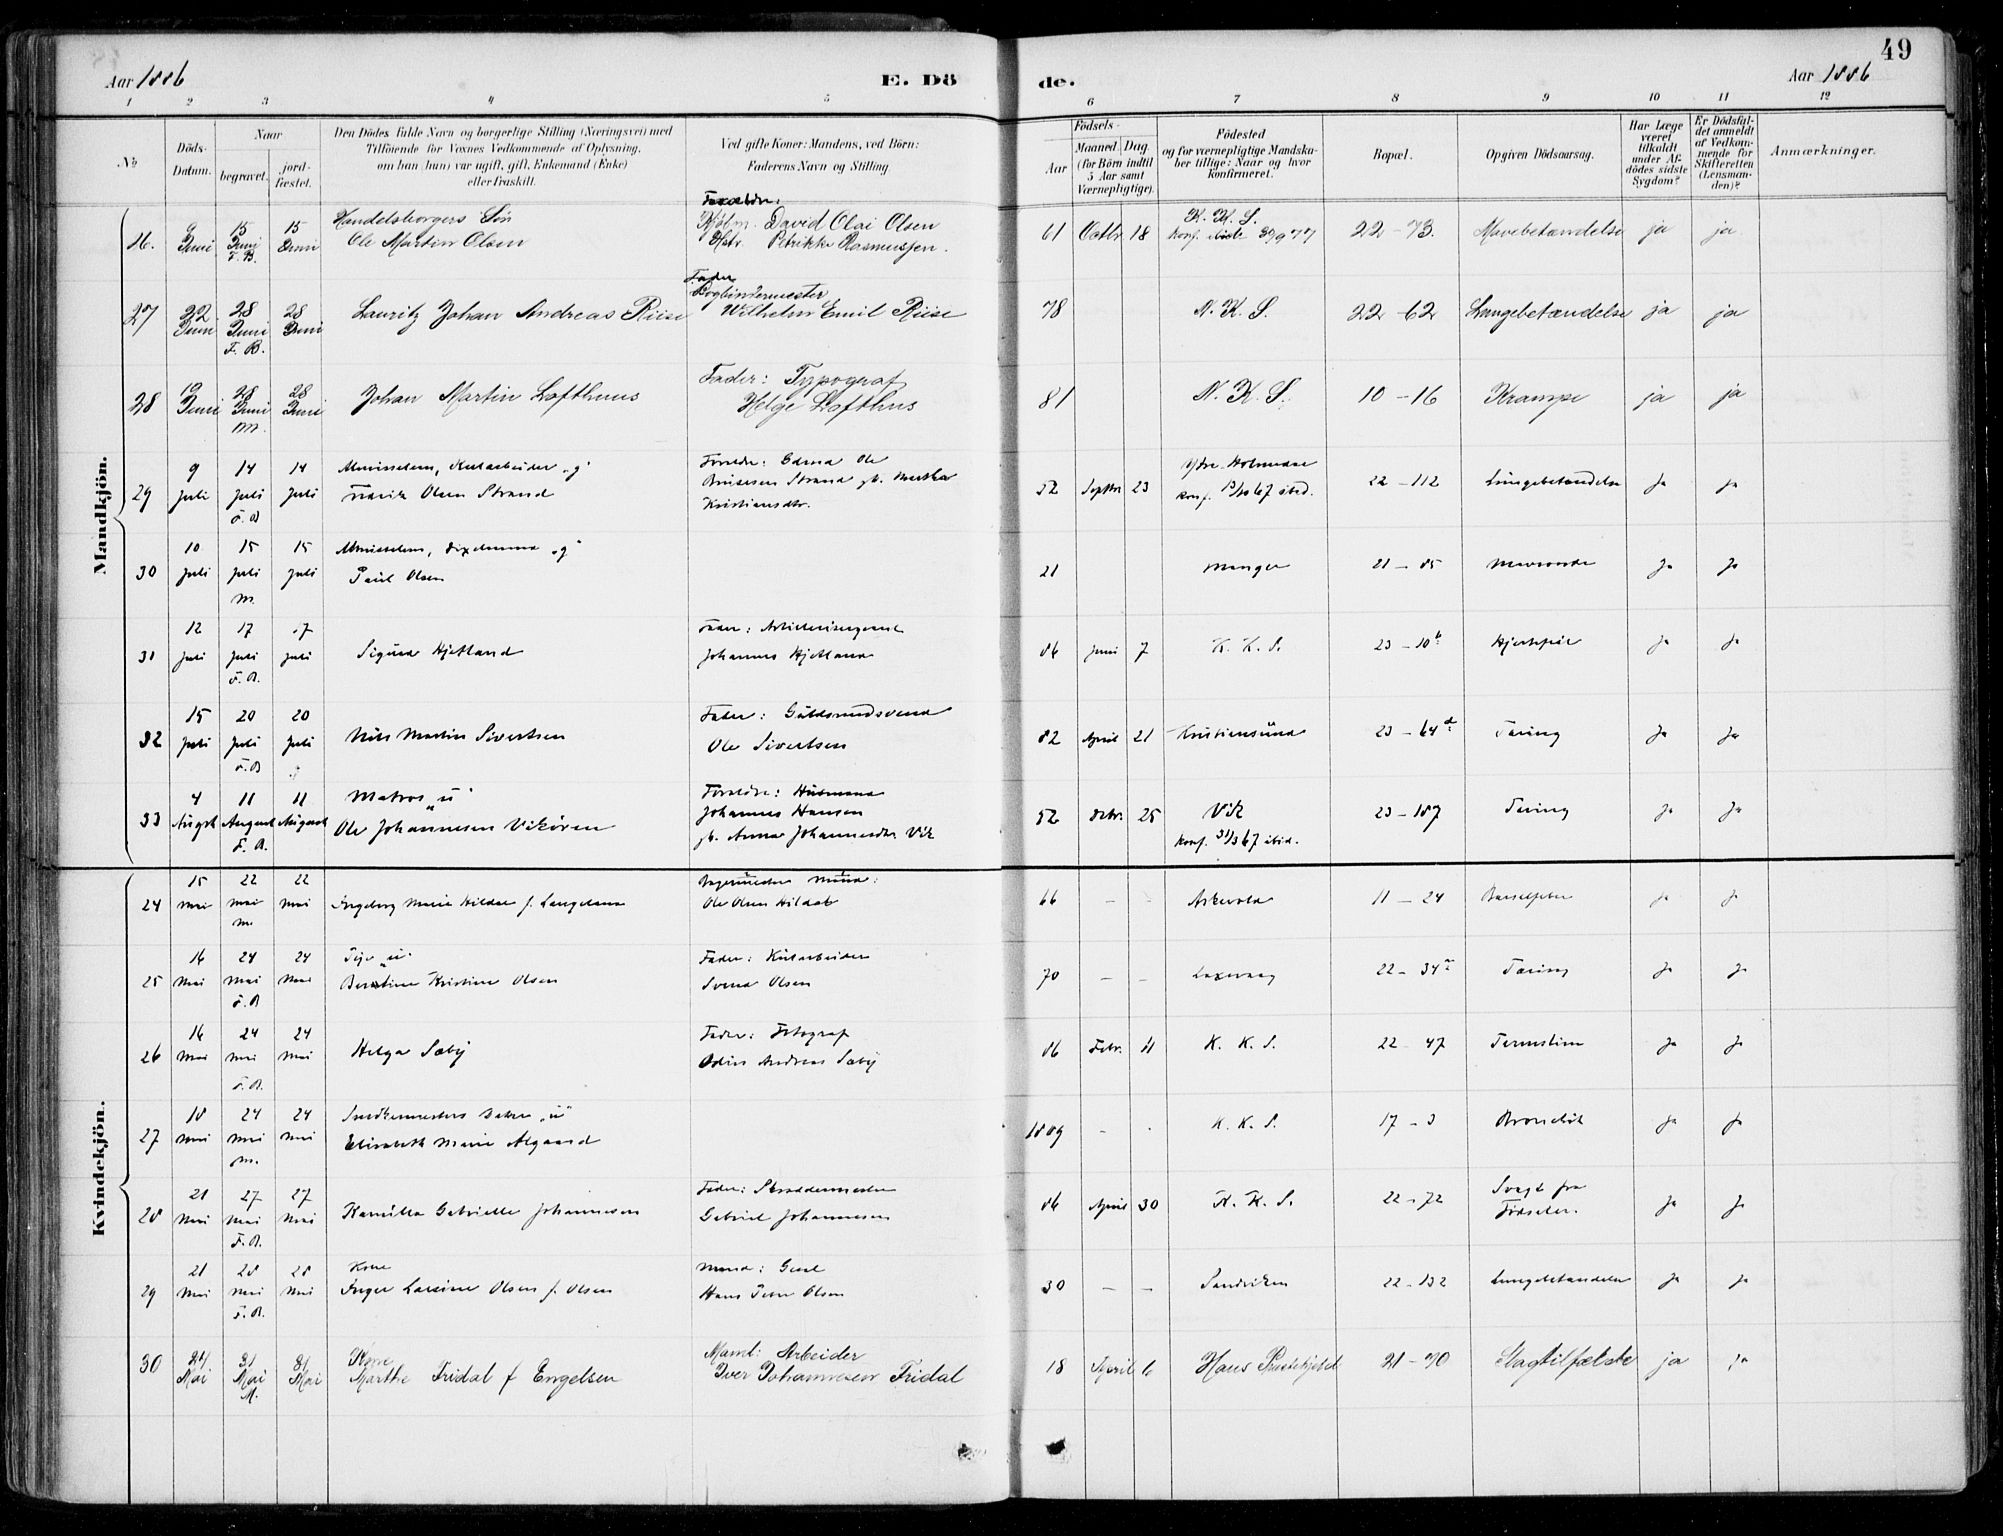 49
Aar 1886
E. Döde.
Aar 1886
1 2 3 4 5 6 7 8 9 10 11 12
No
Döds-Datum.
Naar
begravet.
jord-fæstet.
Den Dödes fulde Navn og borgerlige Stilling (Næringsvei) med
Tilföiende for Voxnes Vedkommende af Oplysning,
om han (hun) var ugift, gift, Enkemand (Enke)
eller fraskilt.
Ved gifte Koner: Mandens, ved Börn:
Faderens Navn og Stilling.
Födsels-
Aar
Maaned. Dag.
(for Börn indtil
5 Aar samt
Værnepligtige).
Födested
og for værnepligtige Mandska-
ber tillige: Naar og hvor
konfirmeret.
Bopæl.
Opgiven Dödsaarsag.
Har Læge
været
tilkaldt
under Af-
dödes sidste
Sygdom?
Er Dödsfal-
det anmeldt
af Vedkom-
mende for
Skifteretten
(Lensman-
den)?
Anmærkninger.
Mandkjön.
26. 9 Juni 15 Juni F. B. 15 Juni Handelsborgers Sön Ole Martin Olsen Forældre: David Olai Olsen Petrikke Rasmussen. 61 Octbr 18 K. K. S. 22-73. Mavebetændelse ja ja
27 22 Juni 28 Juni F. B. 28 Juni Lauritz Johan Andreas Riise Fader Bogbindermester Wilhelm Emil Riise 78 N. K. S. 22-62 Lungebetændelse ja ja
28 19 Juni 28 Juni M. 28 Juni Johan Martin Lofthuus Fader: Typograf Helge Lofthus 81 N. K. S. 10-16 Krampe ja ja
29 9 juli 14 juli F. B 14 juli Almisselem, Kularbeider "g" Olsen Strand Forældre: Ole Strand Kristiansdtr. 52 Septbr 23 konf. 13/10 67 ibid. 22-112 Lungebetændelse ja ja
30 10 juli 15 juli M. 15 juli Almisselem, "g" Paul Olsen 21 Manger 21-85 ja ja
31 12 juli 17 juli F. B. 17 juli Sigurd Hjetland Fader: Artillerisergeant Johannes Hjetland 86 juni 7 K. K. S. 23-10b ja ja
32 15 juli 20 juli F. B 20 juli Nils Martin Sivertsen Fader: Guldsmedsvend Ole Sivertsen 82 April 21 Kristiansund 23-64d Tæring ja ja
33 4 August 11 August F. B. 11 August Matros "u" Ole Johannesen Vikören Forældre: Husmand Johannes Hansen og Anna Johannesdtr Vik 52 Octbr. 25 Vik konf. 31/3 67 ibid. 23-187 Tæring ja ja
Kvindekjön.
24 15 Mai 22 Mai M. 22 Mai Ingeborg Marie Hildal f. Ole Olsen Hildal 66 - - Askevold 11-24 Barselfeber ja ja
25 16 Mai 24 Mai F. B 24 Mai Pige "u" Berntine Kristine Olsen Fader: Kularbeider Svend Olsen 70 - - Laxevaag 22-34a Tæring ja ja
26 16 Mai 24 Mai F. B. 24 Mai Helga Sæby Fader: Fotograf Odin Andreas Sæby 86 Febr. 11 K. K. S. 22-47 ja ja
27 18 Mai 24 Mai M. 24 Mai Snedkermesters Datter "u" Elisabeth Marie Algaard 1809 - - K. K. S. 17-3 Bronchit ja ja
28 21 Mai 27 Mai F. B. 27 Mai Kamilla Gabrielle Johannesen Fader: Skræddermester Gabriel Johannesen 86 April 30 K. K. S. 22-72 Svagt fra Födselen. ja ja
29 21 Mai 28 Mai F. B. 28 Mai Kone Inger Olsen f. Olsen Mand: Hans Peter Olsen 30 - - Sandviken 22-132 Lungebetændelse ja ja
30 24 Mai 31 Mai M. 31 Mai Kone Marthe Fridal f Engelsen Mand: Arbeider Iver Johannesen Fridal 18 April 6 Haus Præstegjeld 21-70 Slagtilfælde ja ja